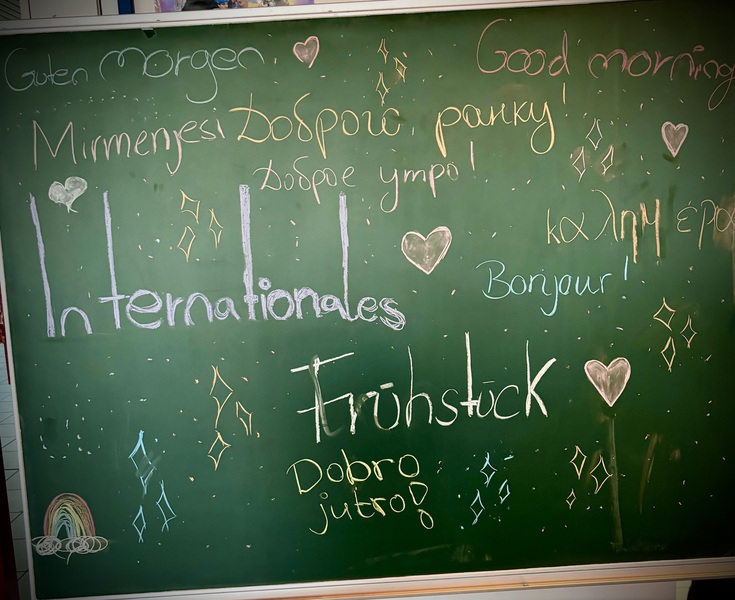 Guten morgen
Good morning
Mirmenjesi
Доброго ранку!
Доброе утро!
καλημέρα
Bonjour!
Internationales
Frühstück
Dobro
jutro!